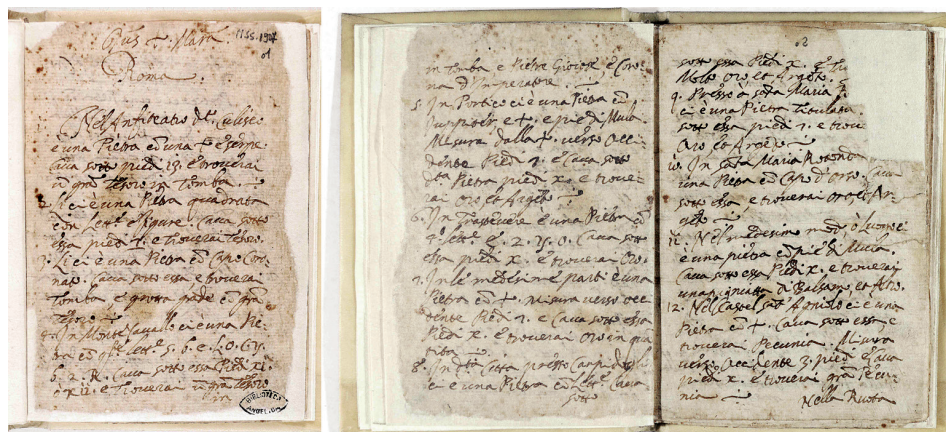 Roma
MSS. 1907
01
Nell'Anfiteatro dto Culiseo
è una Pietra cō una + e serpe
Cava sotto piedi 13. e troverai
un grā Tesoro in Tomba.
2. Li ci è una Pietra quadrata
con Lettre e figure. Cava sotto
essa piedi e troverai Tesoro.
3. Li ci è una Pietra cō Capo Cor-
nuto. Cava sotto essa, e troverai
Tomba, e grotta grāde cō grā
Tesoro
4. In Monte Cavallo ci è una Pie-
tra cō qste Lettre 5. b. e. L. O. G y.
b. 2. R. Cava sotto essa Piedi xi.
o xii. e Troverai un grā Tesoro
in
BIBLIOTECA
ANGELICA
in Tomba e Pietre Gioiose e Coro-
na d'Imperatore.
5. In Portico ci è una Pietra cō
Juppiter e +. e piè di Mula
Misura dalla +. verso Occi-
dente Piedi 7. e Cava sotto
dta Pietra piedi x. e trove-
rai Oro et Argēto
6. In Trastevere è una Pietra cō
qste Lettre e. 2. y. o. Cava sotto
essa piedi x. e troverai Oro.
7. In le medesime parti è una
Pietra cō +. misura verso occi-
dente Piedi 7. e Cava sotto essa
Piedi x. e troverai Oro in quā
tità
8. In dta Città presso Campidoglio
ci è una Pietra cō Lettre Cava
sotto
02
sotto essa Piedi x. e
Molto Oro et Argēto.
9. Presso à Santa Maria
ci è una Pietra Titulata
sotto essa piedi 7. e trove
Oro et Argēto
10. In Santa Maria Rotonda
una Pietra cō Capo d'Oro. Cava
sotto essa, e troverai oro et Ar-
gēto
11. Nel medesimo modo ò Luoco ci
è una pietra cō piè di Mula.
Cava sotto essa Piedi x. e troverai
una pignatta di Balsamo et Altro.
12. Nel Castel Sāt Agniolo ci è una
Pietra cō +. Cava sotto essa, e
troverai Pecunia. Misura
verso Occidente 3. piedi e Cava
piedi x. e troverai grā Pecu-
nia
Nella Ruota